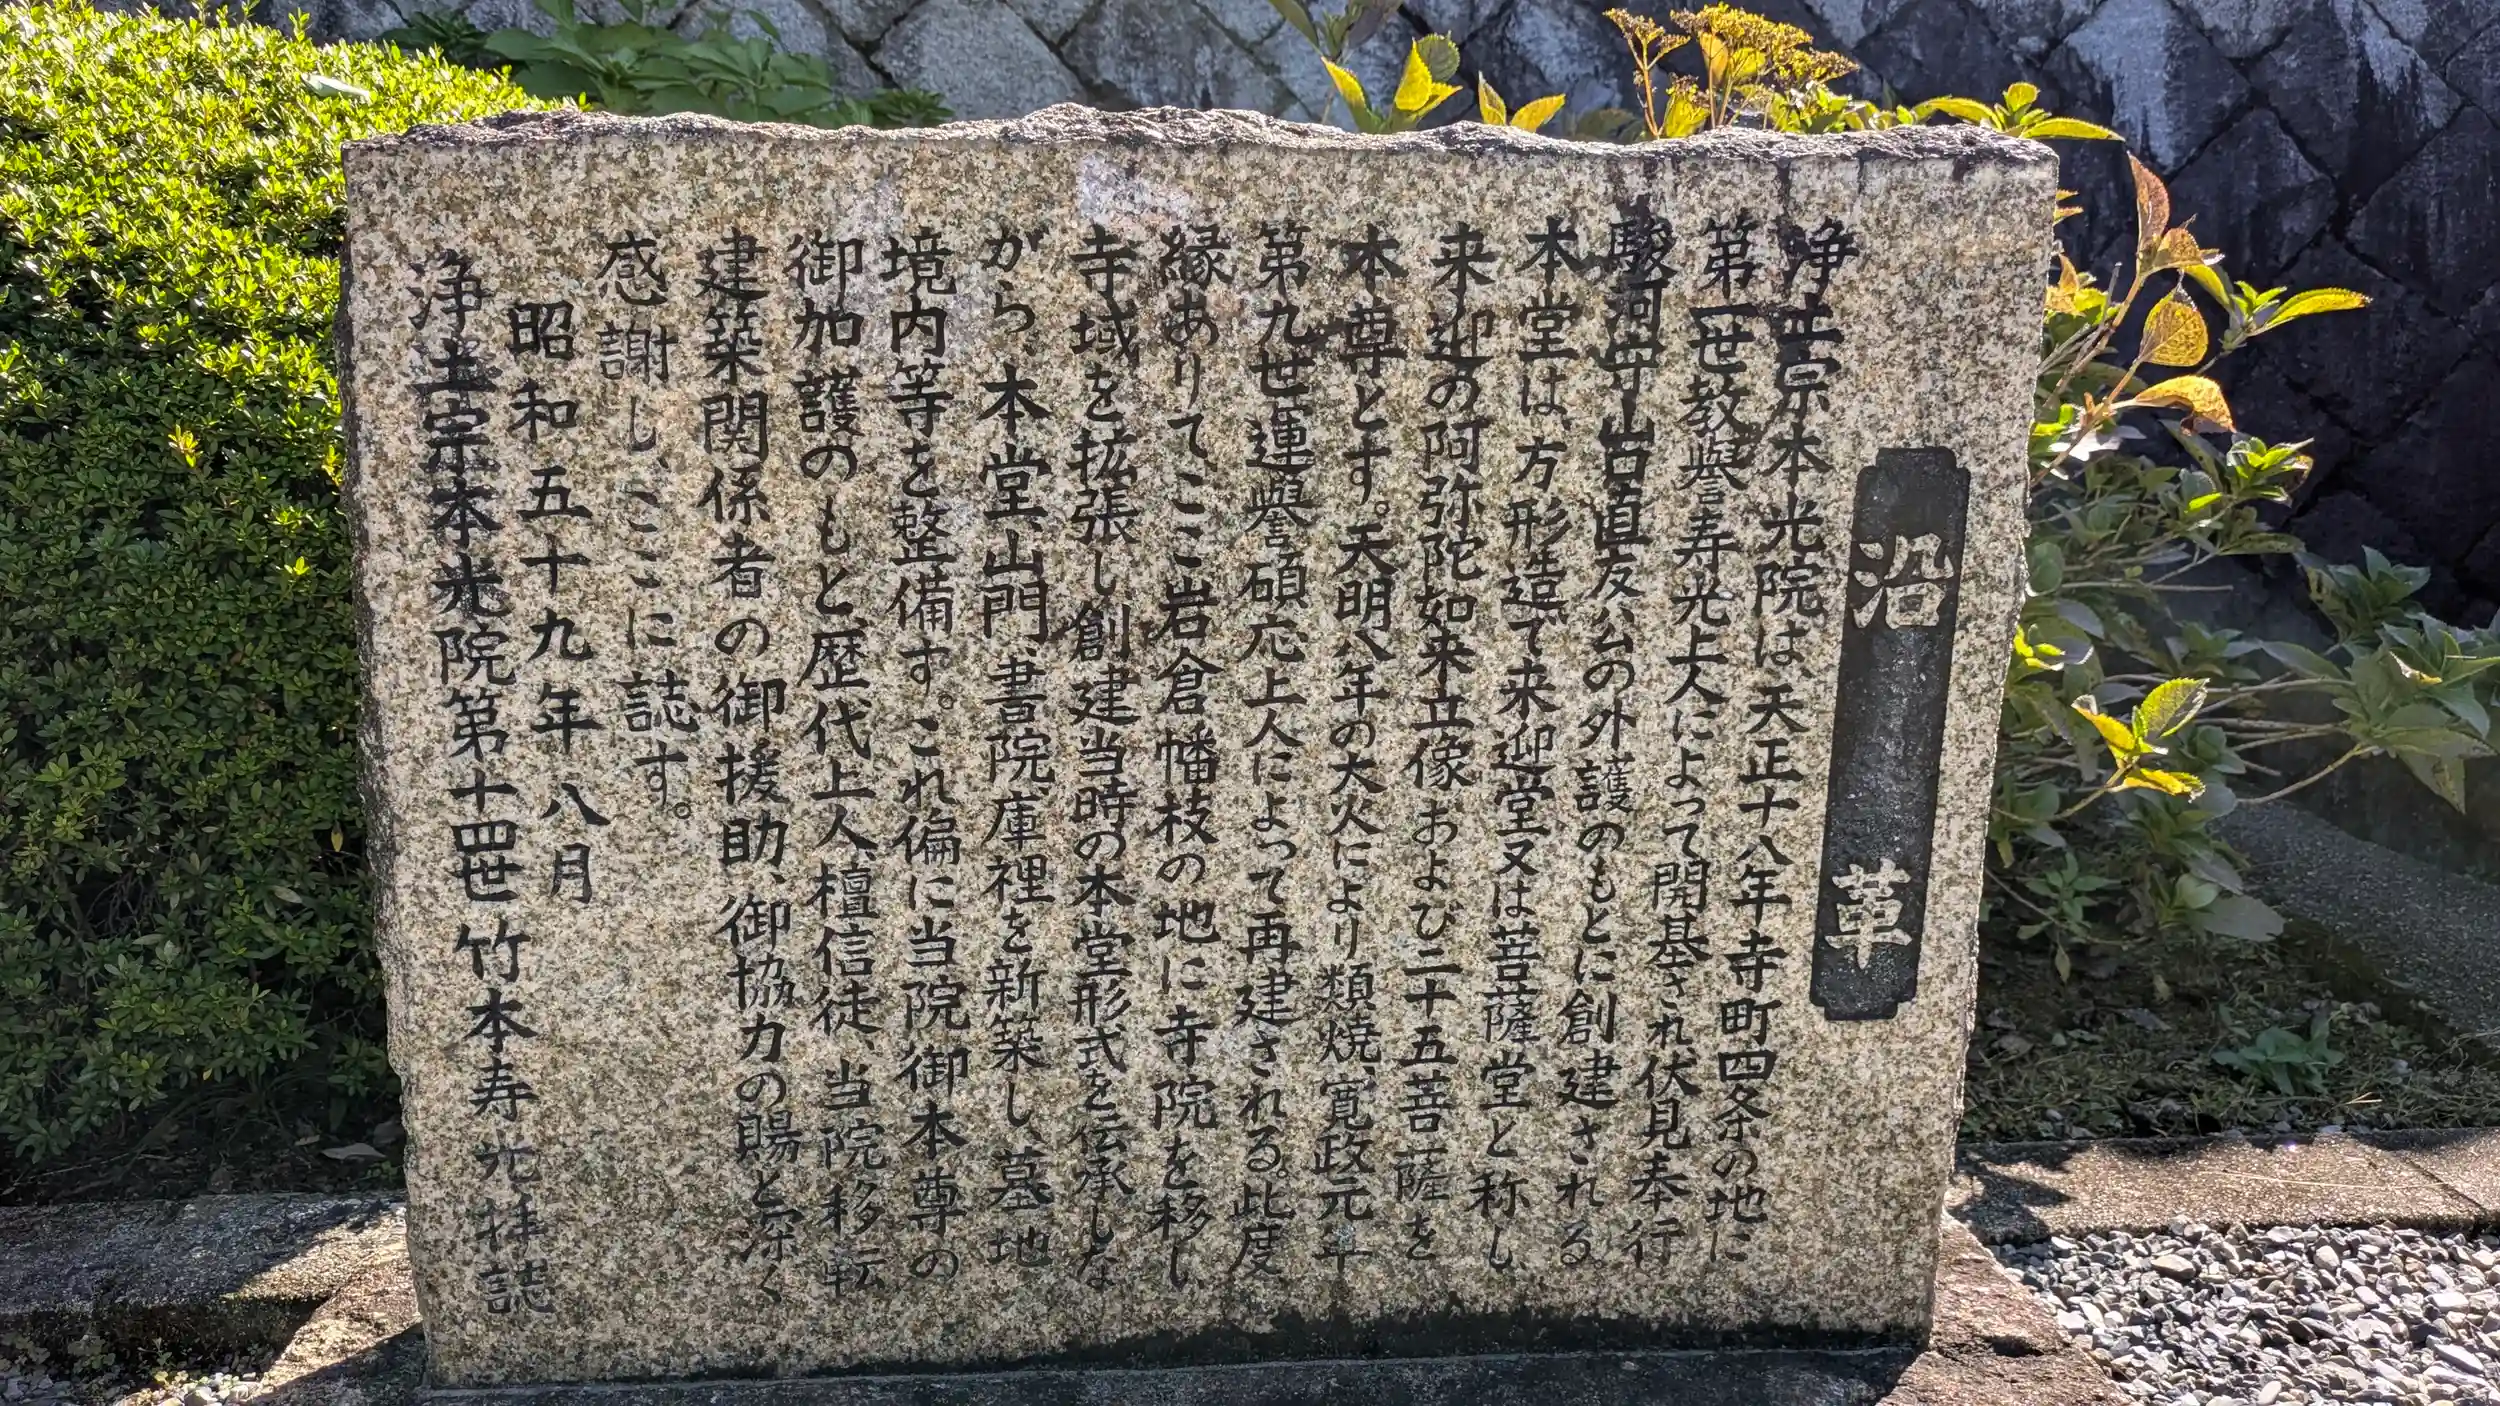 沿革
浄土宗本光院は、天正十八年寺町四条の地に
第一世教譽寿光上人によって開基され伏見奉行
駿河守山岩直友公の外護のもとに創建される。
本堂は、方形造で来迎堂又は菩薩堂と称し
来迎の阿弥陀如来立像および二十五菩薩を
本尊とす。天明八年の大火により類焼、寛政元年
第九世連譽碩応上人によって再建される。此度
縁ありてここ岩倉幡枝の地に寺院を移し
寺域を拡張し創建当時の本堂形式を伝承しな
がら、本堂、山門、書院、庫裡を新築し、墓地
境内等を整備す。これ偏に当院御本尊の
御加護のもと、歴代上人、檀信徒、当院移転
建築関係者の御援助、御協力の賜と深く
感謝し、ここに誌す。
昭和五十九年八月
浄土宗本光院第十四世竹本寿光拝誌